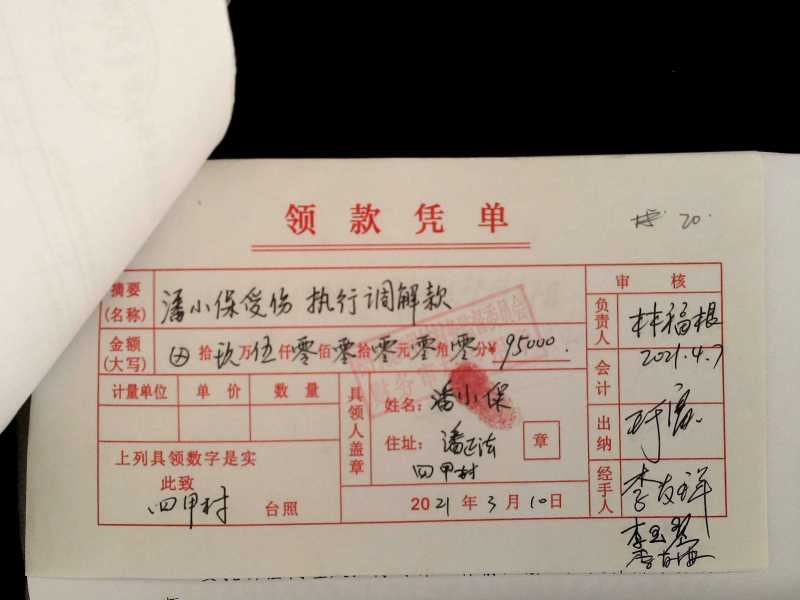 领款凭单
20.
摘要(名称) 潘小保受伤 执行调解款
金额(大写) 拾玖万伍仟零佰零拾零元零角零分¥95000.
计量单位 单价 数量
上列具领数字是实
此致
四甲村 台照
具领人盖章
姓名: 潘小保
住址: 潘正法
四甲村
章
2021年3月10日
审核
负责人 林福根
2021.4.7
会计
出纳
经手人 李友祥